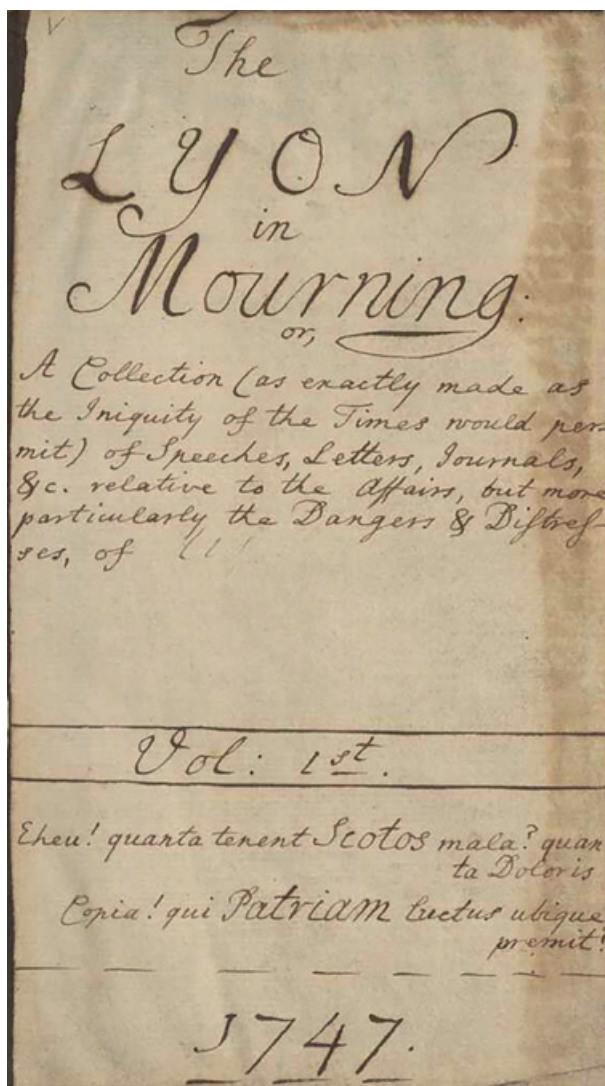 The
LYON
in
Mourning:
or,
A Collection (as exactly made as
the Iniquity of the Times would per-
mit) of Speeches, Letters, Journals,
&c. relative to the Affairs, but more
particularly the Dangers & Distres-
ses, of
Vol: 1st.
Eheu! quanta tenent Scotos mala? quan
ta Doloris
Copia! qui Patriam luctus ubique
premit!
1747.